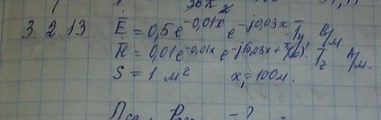 3.2.13 Ė = 0,5e^-0,01x e^-j0,03x 1̄y В/м
Ḣ = 0,01e^-0,01x e^-j(0,03x + π/6) 1̄z А/м.
S = 1 м² x₁ = 100м.
- ?